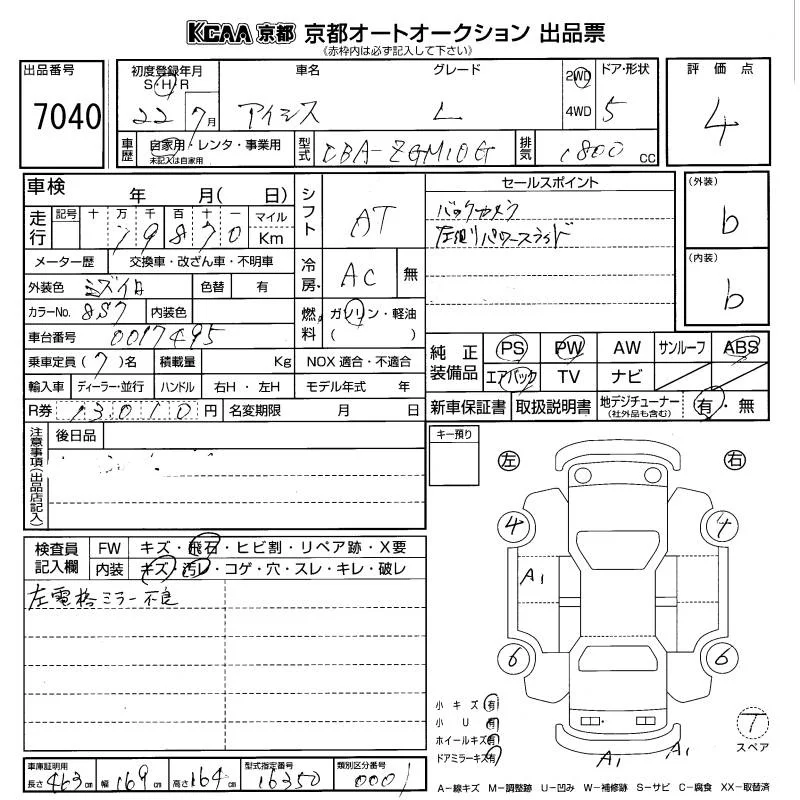 KCAA 京都 京都オートオークション 出品票
(赤枠内は必ず記入して下さい)
出品番号
7040
初度登録年月
S・H・R
22 7月
車名
アイシス
グレード
L
2WD
4WD
ドア・形状
5
評価点
4
車歴
自家用・レンタ・事業用
未記入は自家用
型式
DBA-ZGM10G
排気
1800 CC
車検
年 月( 日)
走行
記号 十 万 千 百 十 一 マイル
79870 Km
メーター歴 交換車・改ざん車・不明車
外装色 ミズイロ 色替 有
カラーNo. 8S7 内装色
車台番号 0017495
乗車定員(7)名 積載量 Kg
輸入車 ディーラー・並行 ハンドル 右H・左H
R券 13010円 名変期限 月 日
シフト AT
冷房 AC 無
燃料 ガソリン・軽油
( )
NOX 適合・不適合
モデル年式 年
セールスポイント
バックカメラ
左側パワースライド
(外装)
b
(内装)
b
純正装備品
PS PW AW サンルーフ ABS
エアバック TV ナビ
新車保証書 取扱説明書 地デジチューナー
(社外品も含む)
有・無
注意事項(出品店記入)
後日品
キー預り
左 右
4 4
A1
6 6
検査員記入欄
FW キズ・飛石・ヒビ割・リペア跡・X要
内装 キズ・汚レ・コゲ・穴・スレ・キレ・破レ
左電格ミラー不良
小キズ 有
小U 有
ホイールキズ 有
ドアミラーキズ 有
A1 A1
T
スペア
車庫証明用
長さ 463cm 幅 169cm 高さ 164cm
型式指定番号
16350
類別区分番号
0001
A-線キズ M-調整跡 U-凹み W-補修跡 S-サビ C-腐食 XX-取替済